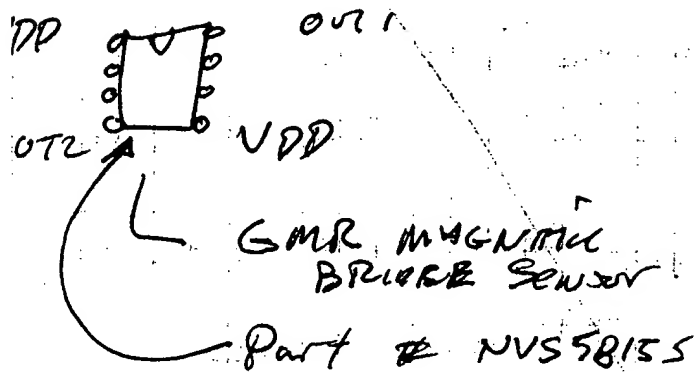 DD OUT1
OT2 VDD
GMR MAGNETIC
BRIDGE Sensor
Part # NVS5B15S